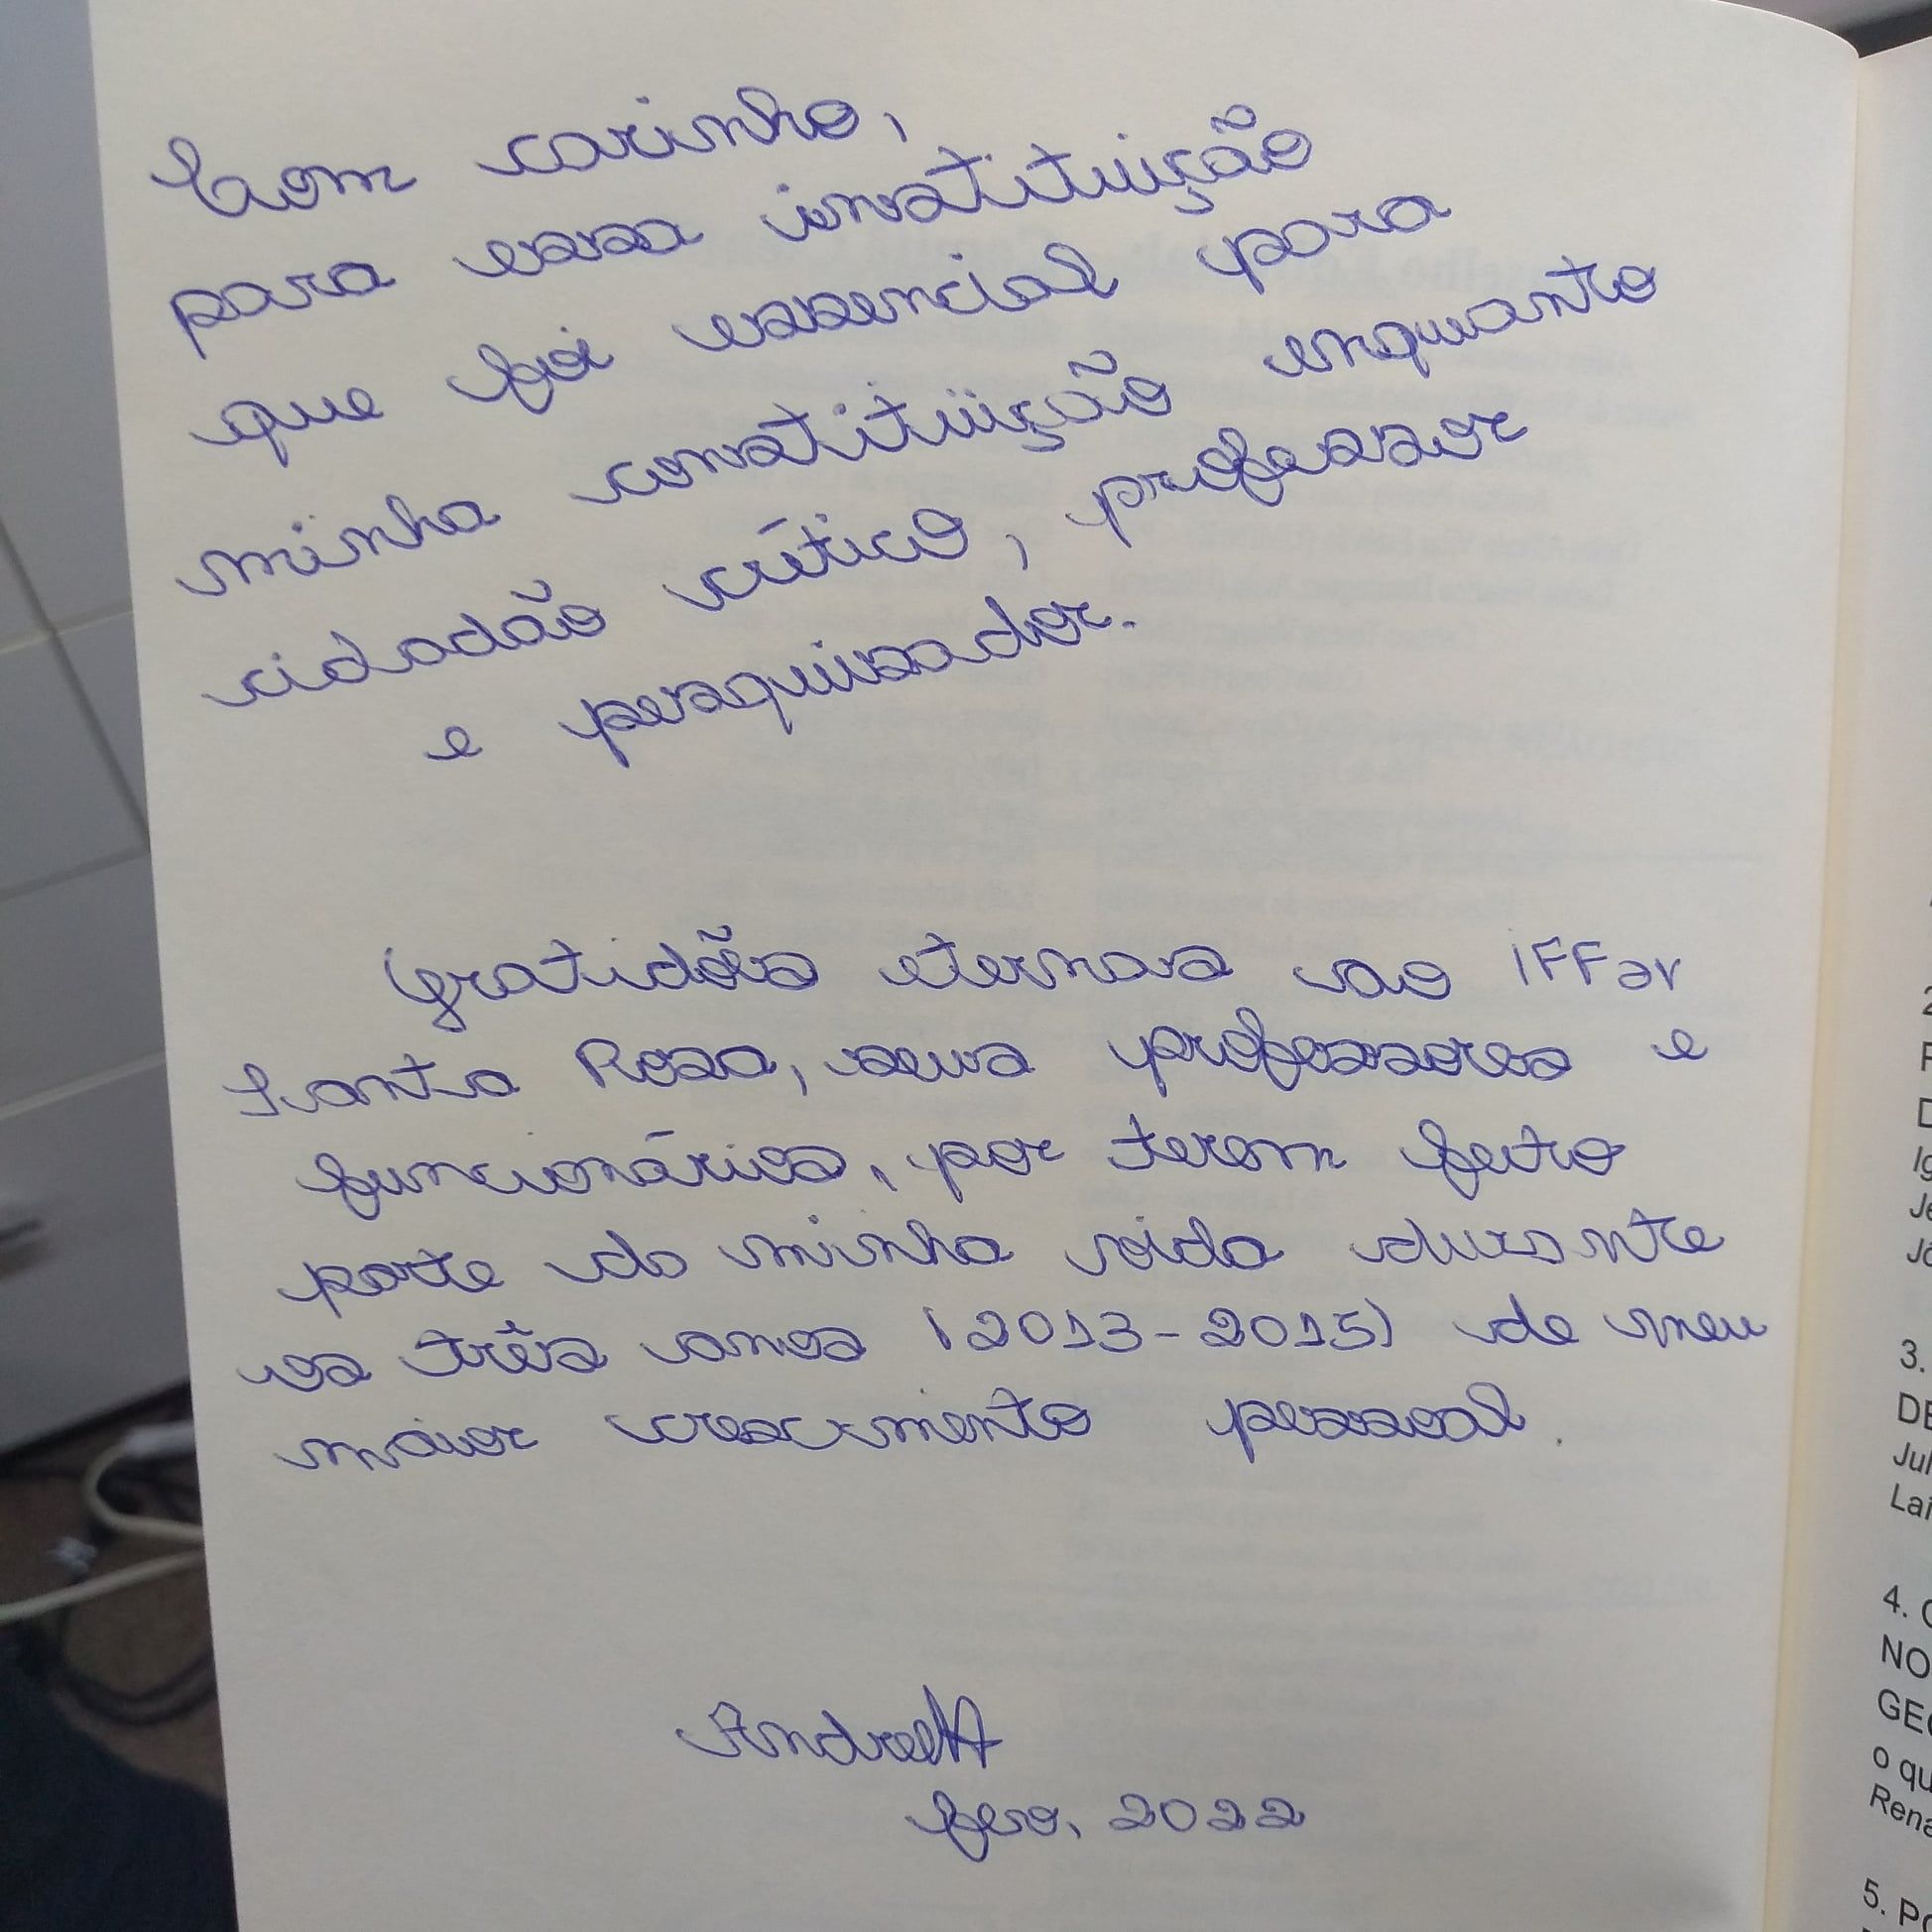 Com carinho,
para essa instituição
que foi essencial para
minha constituição enquanto
cidadão crítico, professor
e pesquisador.
Gratidões eternas ao IFFar
Santa Rosa, seus professores e
funcionários, por terem feito
parte da minha vida durante
os três anos (2013-2015) de meu
maior crescimento pessoal.
fev, 2022
2
3.
DE
Jul
Lai
4.
NO
GEO
o qu
Rena
5. PO